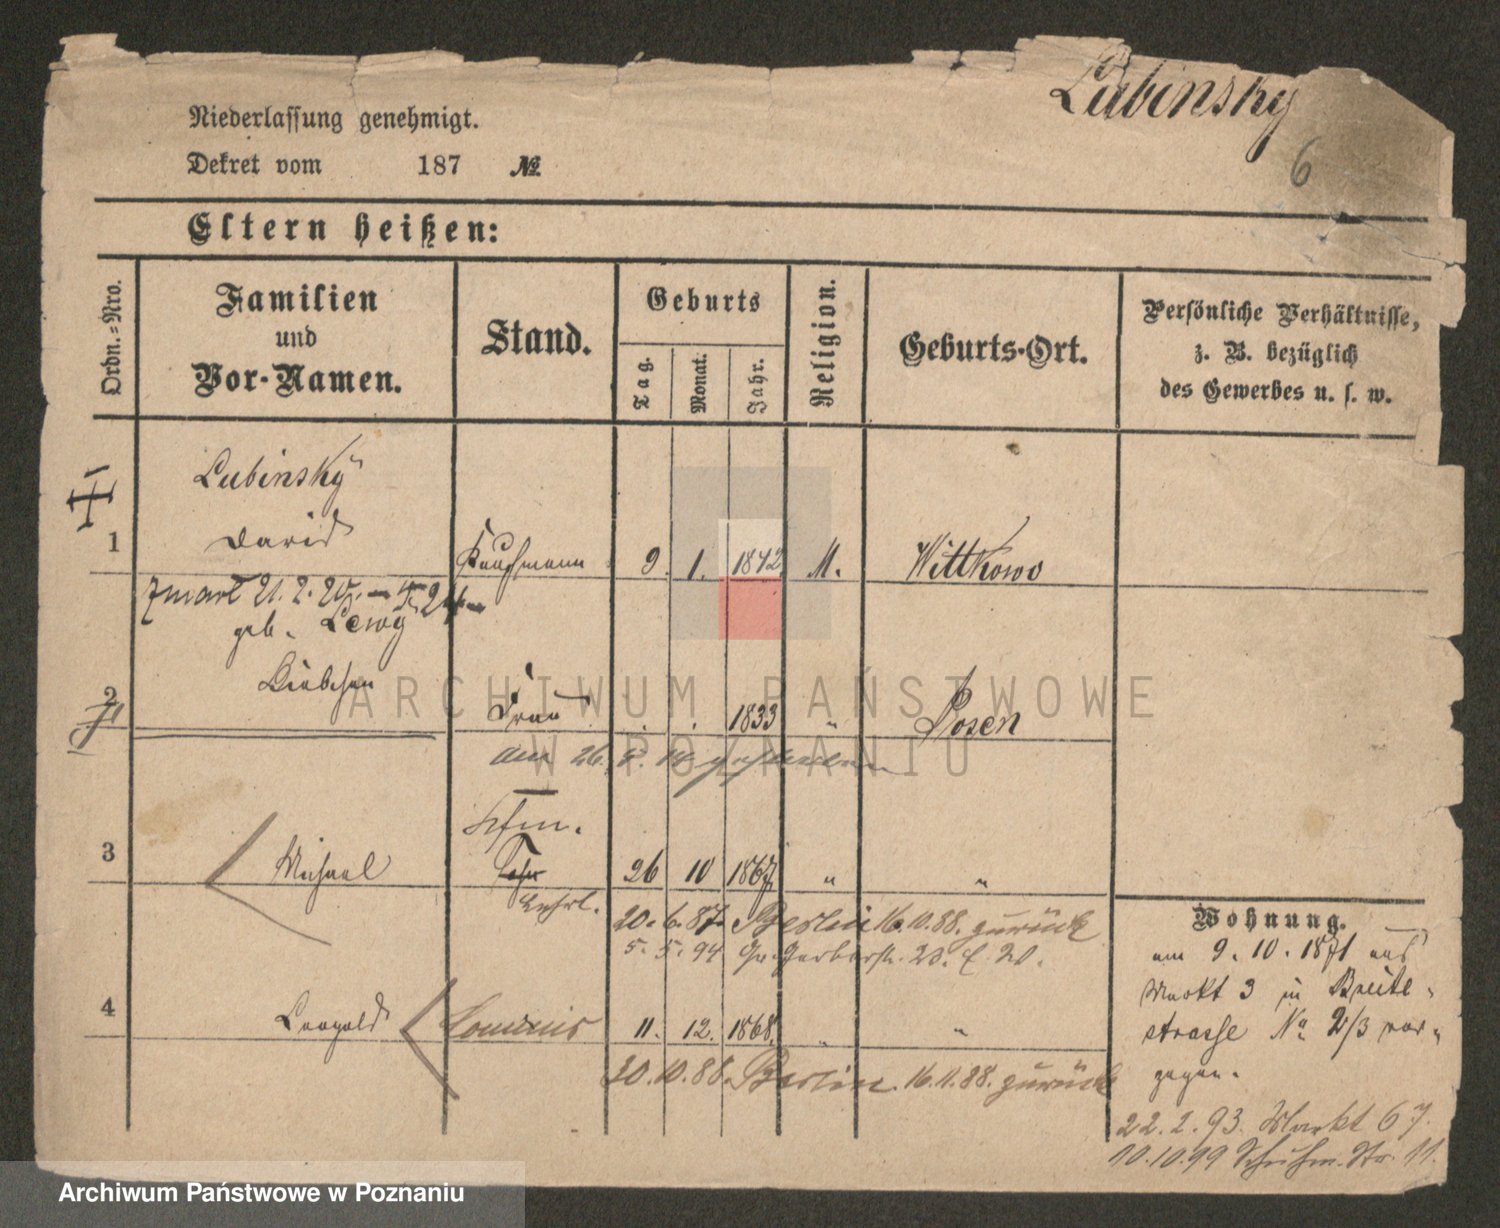 Lubinsky
6
Niederlassung genehmigt.
Dekret vom 187 No.
Eltern heißen:
Ordn.=Nro.
Familien
und
Vor-Namen.
Stand.
Geburts
Tag.
Monat.
Jahr.
Religion.
Geburts-Ort.
Persönliche Verhältnisse,
z. B. bezüglich
des Gewerbes u. s. w.
Lubinsky
David
1 Kaufmann 9. 1. 1842 M. Wittkowo
geb. Lewy
Liebchen
2 Frau 1833 " Posen
am 26.
3 Michael 26 10 1867 " "
Lehrl.
20. 6. 87. Berlin 16.10.88. zurück
5. 5. 94 Gr. Gerberstr.
4 Leopold Commis 11. 12. 1868. " "
20.10.88. Berlin. 16.11.88. zurück
Wohnung.
am 9. 10. 1871 aus
Markt 3 in Breite-
strasse No
22. 2. 93. Markt 67.
10.10.99 Schuhm. Str. 11.
ARCHIWUM PAŃSTWOWE
W POZNANIU
Archiwum Państwowe w Poznaniu